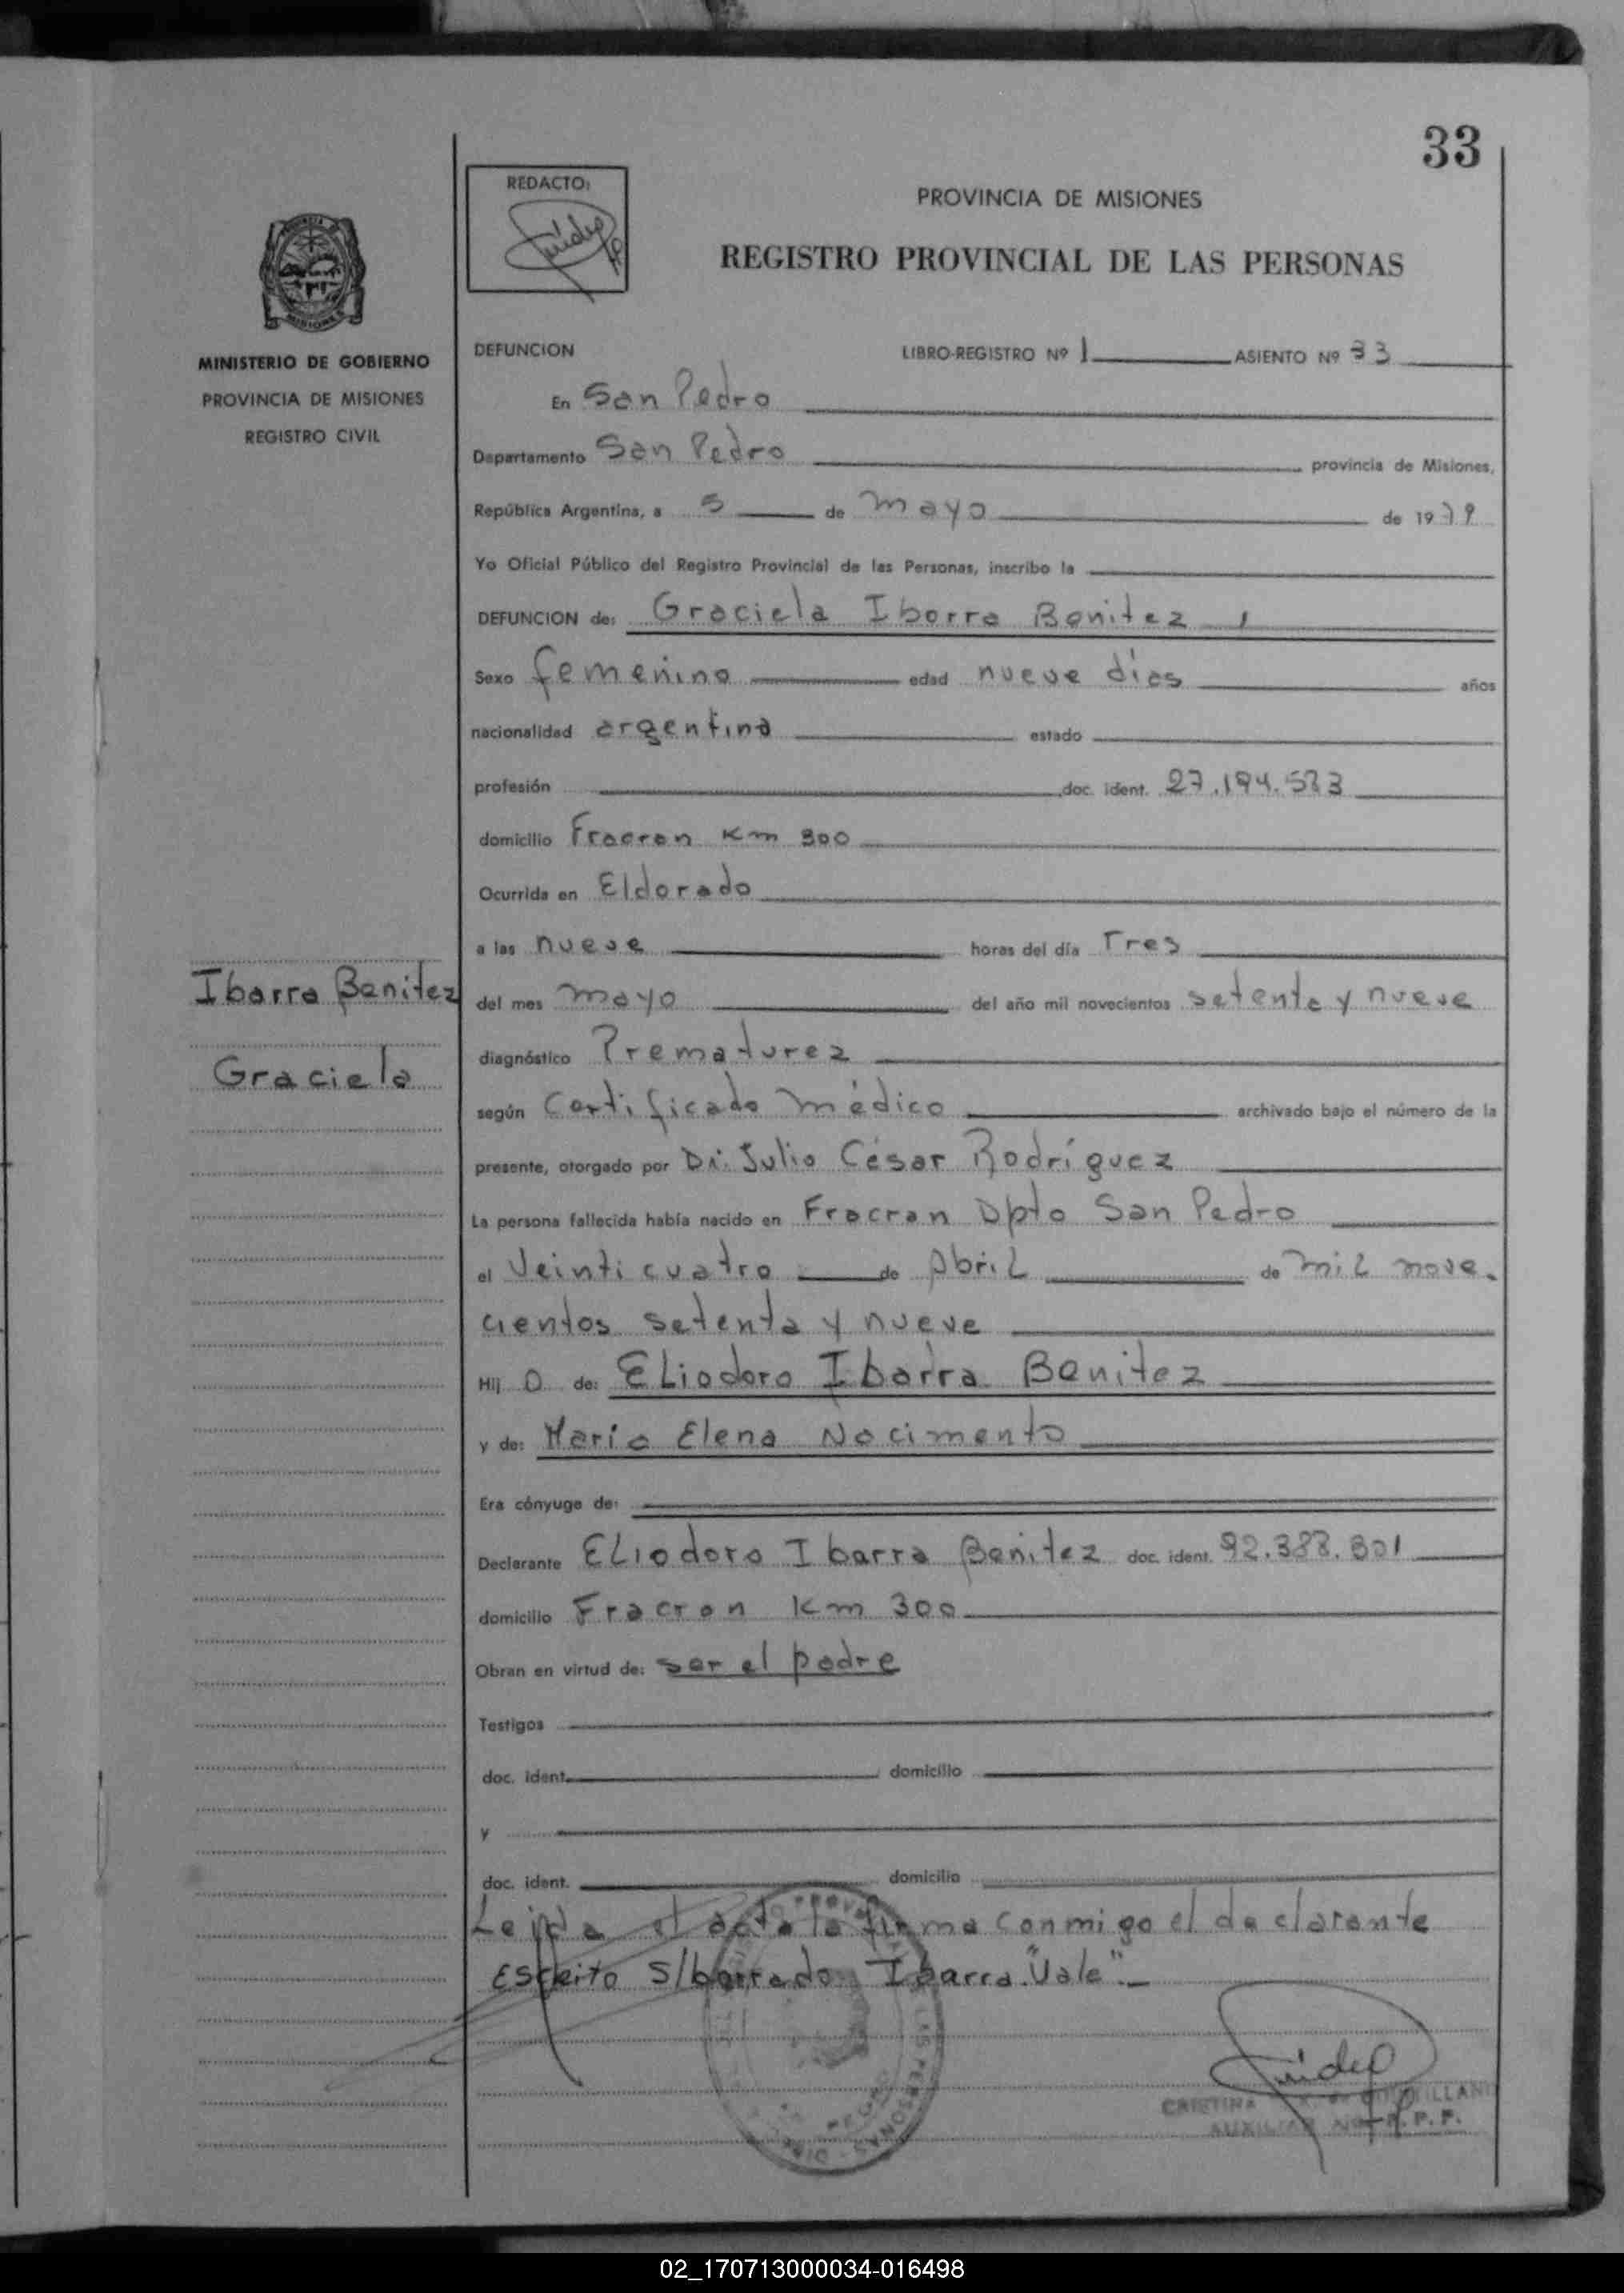 33
REDACTO:
PROVINCIA DE MISIONES
REGISTRO PROVINCIAL DE LAS PERSONAS
MISIONES
MINISTERIO DE GOBIERNO
PROVINCIA DE MISIONES
REGISTRO CIVIL
DEFUNCION LIBRO-REGISTRO Nº 1 ASIENTO Nº 33
En San Pedro
Departamento San Pedro provincia de Misiones,
República Argentina, a 5 de mayo de 1979
Yo Oficial Público del Registro Provincial de las Personas, inscribo la
DEFUNCION de: Graciela Ibarra Benitez
Sexo femenino edad nueve días años
nacionalidad argentina estado
profesión doc. ident. 27.194.523
domicilio Fracran Km 300
Ocurrida en Eldorado
a las nueve horas del día Tres
Ibarra Benitez
Graciela
del mes mayo del año mil novecientos setenta y nueve
diagnóstico Prematurez
según Certificado médico archivado bajo el número de la
presente, otorgado por Dr. Julio César Rodríguez
La persona fallecida había nacido en Fracran Dpto San Pedro
el Veinticuatro de Abril de mil nove.
cientos setenta y nueve
Hij a de: Eliodoro Ibarra Benitez
y de: María Elena Nacimento
Era cónyuge de:
Declarante Eliodoro Ibarra Benitez doc. ident. 92.388.801
domicilio Fracran Km 300
Obran en virtud de: ser el padre
Testigos
doc. ident. domicilio
y
doc. ident. domicilio
Leida el acta la firma conmigo el declarante
Escrito S/borrado Ibarra "Vale".-
CRISTINA
AUXILIAR R.P.P.
02_170713000034-016498